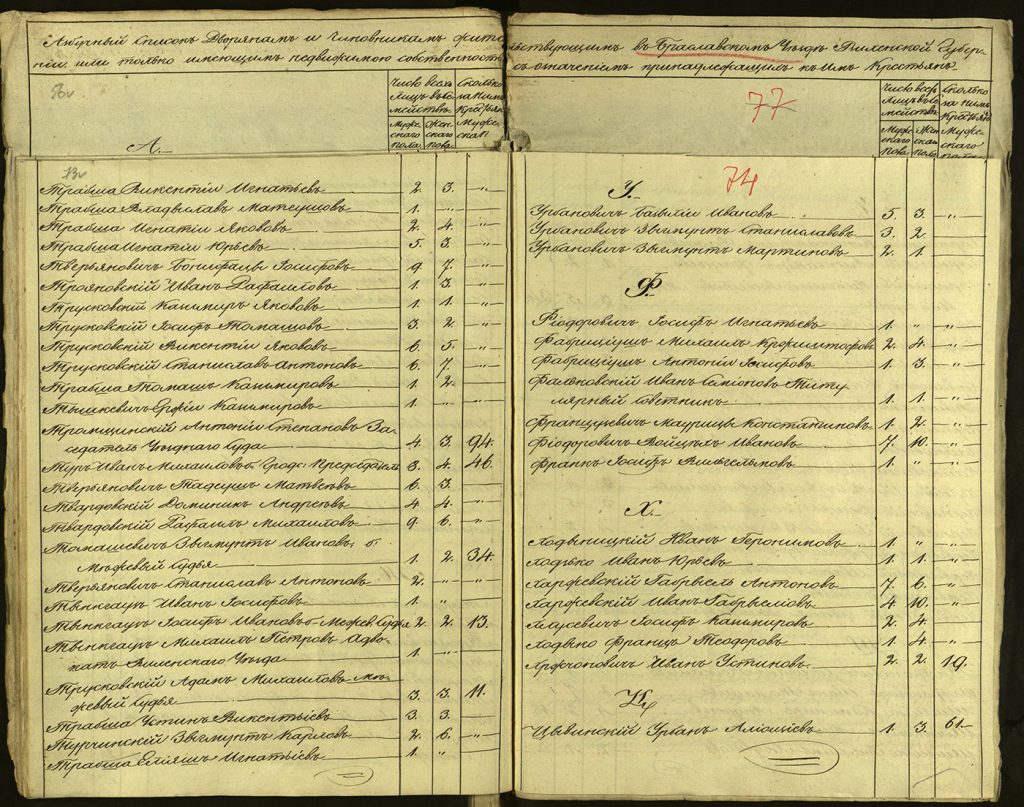 Азбучный Списокъ Дворянамъ и Чиновникамъ жительствующимъ въ Браславскомъ Уѣздѣ Виленской Губер-
нiи или только имеющимъ недвижимою собственность съ означенiемъ принадлежащихъ къ нимъ Крестьянъ
Число всехъ Лицъ въ се мействѣ
Муже скаго пола
Жен скаго пола
Сколько за ними Крестьянъ Мужескаго
А.
Трабша Викентiй Игнатьевъ 2. 3. „
Трабша Владыславъ Матеушовъ 1. „
Трабша Игнатiй Яковъ 2. 4. „
Трабша Игнатiй Юрьевъ 5. 3. „
Тверьяновичъ Бонифацы Iосифовъ 9. 7. „
Трояковскiй Иванъ Рафаиловъ 1. 3. „
Трусковскiй Казимиръ Яковъ 1. 1. „
Трусковскiй Iосифъ Томашовъ 3. 2. „
Трусковскiй Викентiй Яковъ 6. 5. „
Трусковскiй Станиславъ Антоновъ 6. 7. „
Трабша Томашъ Казимировъ 1. 2. „
Тышкевичъ Казимировъ 1. „
Тромщинскiй Антонiй Степановъ За-
седатель Уѣзднаго Суда 4. 3. 94.
Туръ Иванъ Михайловъ Председатель 3. 4. 46.
Тверьяновичъ Тадеушъ Матвеевъ 6. 3.
Твардовскiй Доминикъ Андреевъ 4. 4. „
Твардовскiй Рафаилъ Михаиловъ 9. 6. „
Томашевичъ Зыгмунтъ Ивановъ б.
Межевый Судья 1. 2. 34.
Тверьяновичъ Станиславъ Антоновъ 2. „ „
Тынкгаузъ Иванъ Iосифовъ 1. „
Тынкгаузъ Iосифъ Ивановъ б. Межев. Судья 2. 2. 13.
Тынкгаузъ Михаилъ Петровъ Адво-
катъ Виленскаго Уѣзда 1. „
Трусковскiй Адамъ Михайловъ Ме-
жевый Судья 3. 3. 11.
Трабша Устинъ Викентьевъ 3. 3.
Турчинскiй Зыгмунтъ Карловъ 2. 6. „
Трабша Елiяшъ Игнатьевъ 1. „
77
Число всехъ Лицъ въ се мействѣ
Муже скаго пола
Жен ска пола
Сколько за нимъ Крестьян Мужескаго
74
У.
Урбановичъ Базылiй Ивановъ 5. 3. „
Урбановичъ Зыгмунтъ Станиславовъ 3. 2.
Урбановичъ Зыгмунтъ Мартиновъ 2. 1.
Ф.
Фiодоровичъ Iосифъ Игнатьевъ 1. „ „
Фабрицiушъ Михаилъ 2. 4. „
Фабрицiушъ Антонiй Iосифовъ 1. 3. „
Фальковскiй Иванъ Семiоновъ Титу
лярный Советникъ 1. 1. „
Французевичъ Маурицы Константиновъ 1. 2. „
Фiодоровичъ Войцѣхъ Ивановъ 7. 10. „
Франкъ Iосифъ Вильгельмовъ 1. „
Х.
Ходыницкiй Иванъ Iеронимовъ 1. „ „
Ходзько Иванъ Юрьевъ 1. 1. „
Харжевскiй Габрыель Антоновъ 7. 6. „
Харжевскiй Иванъ Габрыеловъ 4. 10. „
Iосифъ Казимировъ 2. 4. „
Ходзько Францъ Теодоровъ 1. 4. „
Иванъ Устиновъ 2. 2. 19.
Ц.
Цывинскiй Урбанъ 1. 3. 61